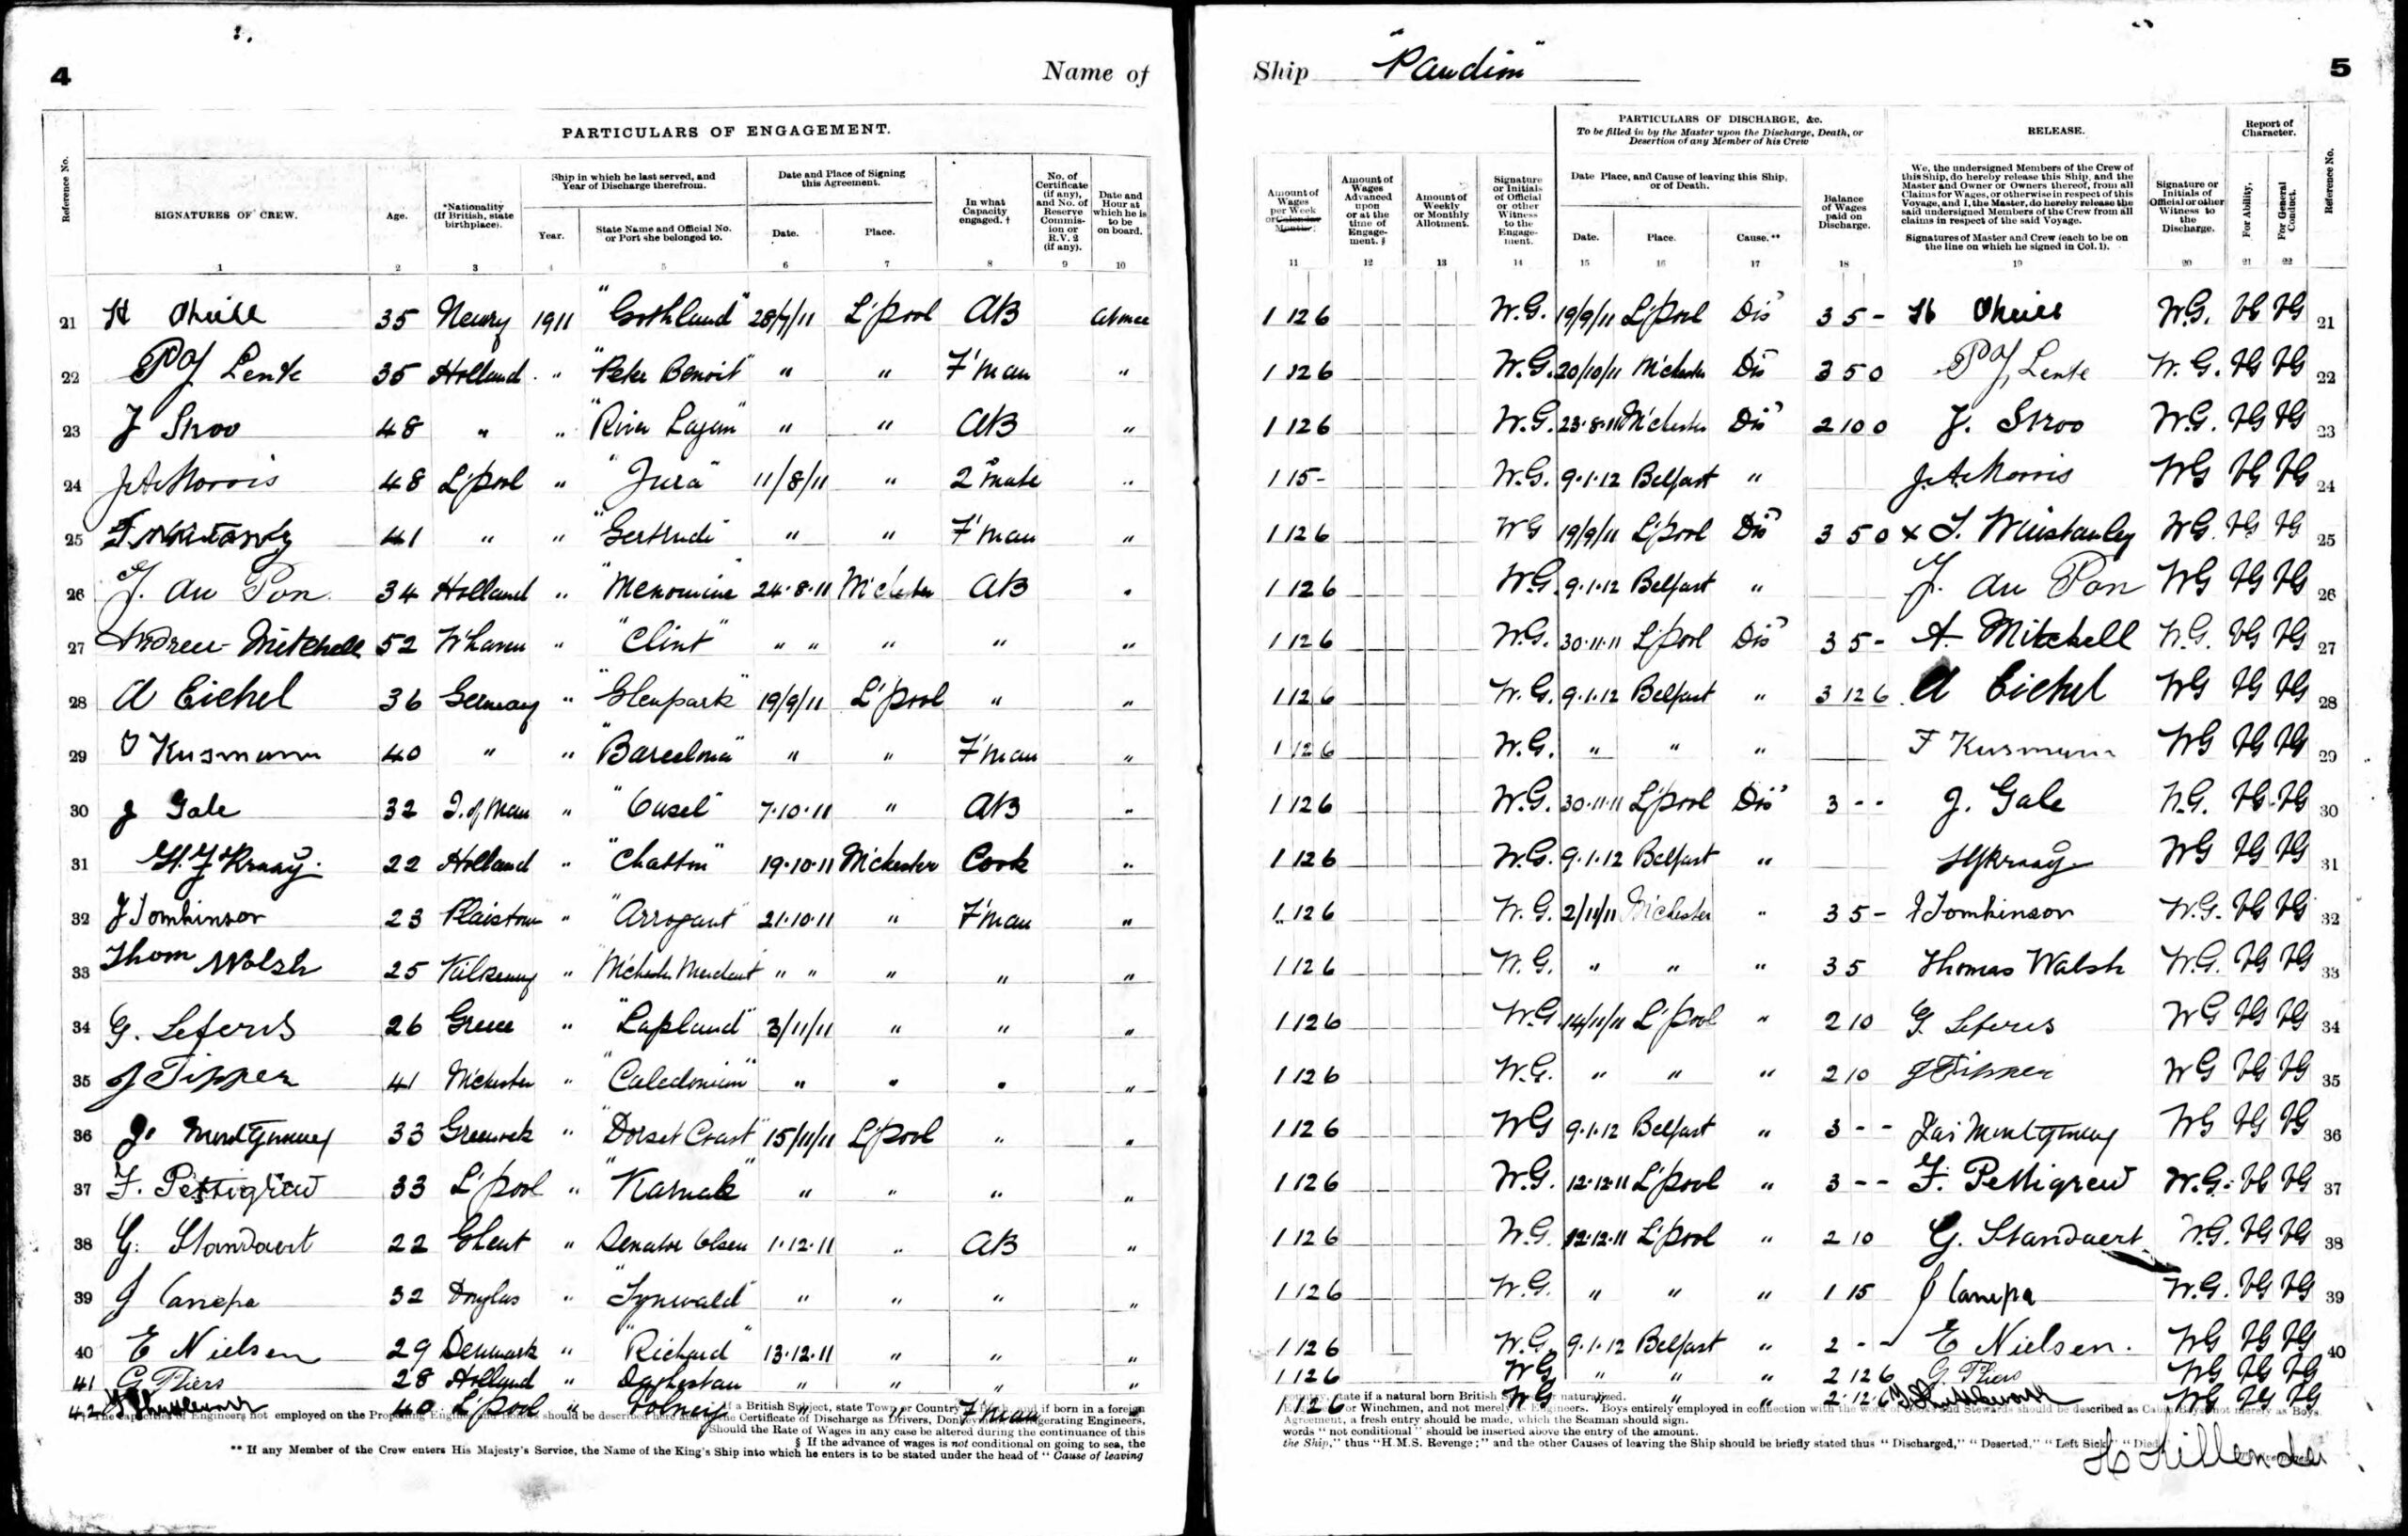 4
Name of
PARTICULARS OF ENGAGEMENT.
Reference No.
SIGNATURES OF CREW.
Age.
*Nationality (If British, state birthplace).
Ship in which he last served, and Year of Discharge therefrom.
Year.
State Name and Official No. or Port she belonged to.
Date and Place of Signing this Agreement.
Date.
Place.
In what Capacity engaged. †
No. of Certificate (if any), and No. of Reserve Commission or R.V. 2 (if any).
Date and Hour at which he is to be on board.
1 2 3 4 5 6 7 8 9 10
21 H 35 Newry 1911 "Gothland" 28/7/11 L'pool AB at once
22 P J Lente 35 Holland " "Peter Benoit" " " F'man "
23 J Stroo 48 " " "River Lagan" " " AB "
24 J. A. Morris 48 L'pool " "Jura" 11/8/11 " 2nd Mate "
25 41 " " "Gertrude" " " F'man "
26 J. du Pon 34 Holland " "Menominee" 24.8.11 M'chester AB "
27 Andrew Mitchell 52 W'haven " "Clint" " " " " "
28 A Eichel 36 Germany " "Glenpark" 19/9/11 L'pool " "
29 Kusmann 40 " " "Barcelona" " " F'man "
30 J Gale 32 I. of Man " "Ousel" 7.10.11 " AB "
31 H. J Kraay 22 Holland " 19.10.11 M'chester Cook "
32 J Tomkinson 23 Plaistow " "Arrogant" 21.10.11 " F'man "
33 Thom Walsh 25 Kilkenny " M'chester Merchant " " " " "
34 G. Leferis 26 Greece " "Lapland" 3/11/11 " " "
35 J Tipper 41 M'chester " "Caledonian" " " " "
36 J. Montgomery 33 Greenock " "Dorset Coast" 15/11/11 L'pool " "
37 F. Pettigrew 33 L'pool " "Karnak" " " " "
38 G. Standaert 22 Ghent " Senator Olsen 1.12.11 " AB "
39 J Canepa 32 Douglas " "Tynwald" " " " "
40 E Nielsen 29 Denmark " "Richard" 13.12.11 " " "
41 G Pliers 28 Holland " Daghestan " " " "
42 40 L'pool " " " F'man
** If any Member of the Crew enters His Majesty's Service, the Name of the King's Ship into which he enters is to be stated under the head of "Cause of leaving
Ship
5
PARTICULARS OF DISCHARGE, &c.
To be filled in by the Master upon the Discharge, Death, or Desertion of any Member of his Crew
RELEASE.
Report of Character.
Amount of Wages per Week or Calendar Month.
Amount of Wages Advanced upon or at the time of Engagement. §
Amount of Weekly or Monthly Allotment.
Signature or Initials of Official or other Witness to the Engagement.
Date Place, and Cause of leaving this Ship, or of Death.
Date.
Place.
Cause.**
Balance of Wages paid on Discharge.
We, the undersigned Members of the Crew of this Ship, do hereby release this Ship, and the Master and Owner or Owners thereof, from all Claims for Wages, or otherwise in respect of this Voyage, and I, the Master, do hereby release the said undersigned Members of the Crew from all claims in respect of the said Voyage.
Signatures of Master and Crew (each to be on the line on which he signed in Col. 1).
Signature or Initials of Official or other Witness to the Discharge.
For Ability.
For General Conduct.
Reference No.
11 12 13 14 15 16 17 18 19 20 21 22
1 12 6 W.G. 19/9/11 L'pool Dis 3 5 - H W.G. VG VG 21
1 12 6 W.G. 20/10/11 M'chester Dis 3 5 0 P J Lente W.G. VG VG 22
1 12 6 W.G. 23.8.11 M'chester Dis 2 10 0 J. Stroo W.G. VG VG 23
1 15 - W.G. 9.1.12 Belfast " J. A. Morris WG VG VG 24
1 12 6 WG 19/9/11 L'pool Dis 3 5 0 x Winstanley WG VG VG 25
1 12 6 W.G. 9.1.12 Belfast " J. du Pon WG VG VG 26
1 12 6 W.G. 30.11.11 L'pool Dis 3 5 - A. Mitchell W.G. VG VG 27
1 12 6 W.G. 9.1.12 Belfast " 3 12 6 A Eichel WG VG VG 28
1 12 6 W.G. " " " F Kusmann WG VG VG 29
1 12 6 W.G. 30.11.11 L'pool Dis 3 - - J. Gale W.G. VG VG 30
1 12 6 W.G. 9.1.12 Belfast " HJKraay WG VG VG 31
1 12 6 W.G. 2/11/11 M'chester " 3 5 - J Tomkinson W.G. VG VG 32
1 12 6 W.G. " " " 3 5 Thomas Walsh W.G. VG VG 33
1 12 6 W.G. 14/11/11 L'pool " 2 10 G. Leferis WG VG VG 34
1 12 6 W.G. " " " 2 10 J Tipper WG VG VG 35
1 12 6 WG 9.1.12 Belfast " 3 - - Jas Montgomery WG VG VG 36
1 12 6 W.G. 12.12.11 L'pool " 3 - - F. Pettigrew W.G. VG VG 37
1 12 6 W.G. 12.12.11 L'pool " 2 10 G. Standaert W.G. VG VG 38
1 12 6 W.G. " " " 1 15 J Canepa W.G. VG VG 39
1 12 6 W.G. 9.1.12 Belfast " 2 - - E Nielsen. WG VG VG 40
1 12 6 WG " " " 2 12 6 G. Pliers WG VG VG
1 12 6 WG " " 2.12.6 WG VG VG
Agreement, a fresh entry should be made, which the Seaman should sign.
words "not conditional" should be inserted above the entry of the amount.
the Ship," thus "H.M.S. Revenge;" and the other Causes of leaving the Ship should be briefly stated thus "Discharged," "Deserted," "Left Sick,"